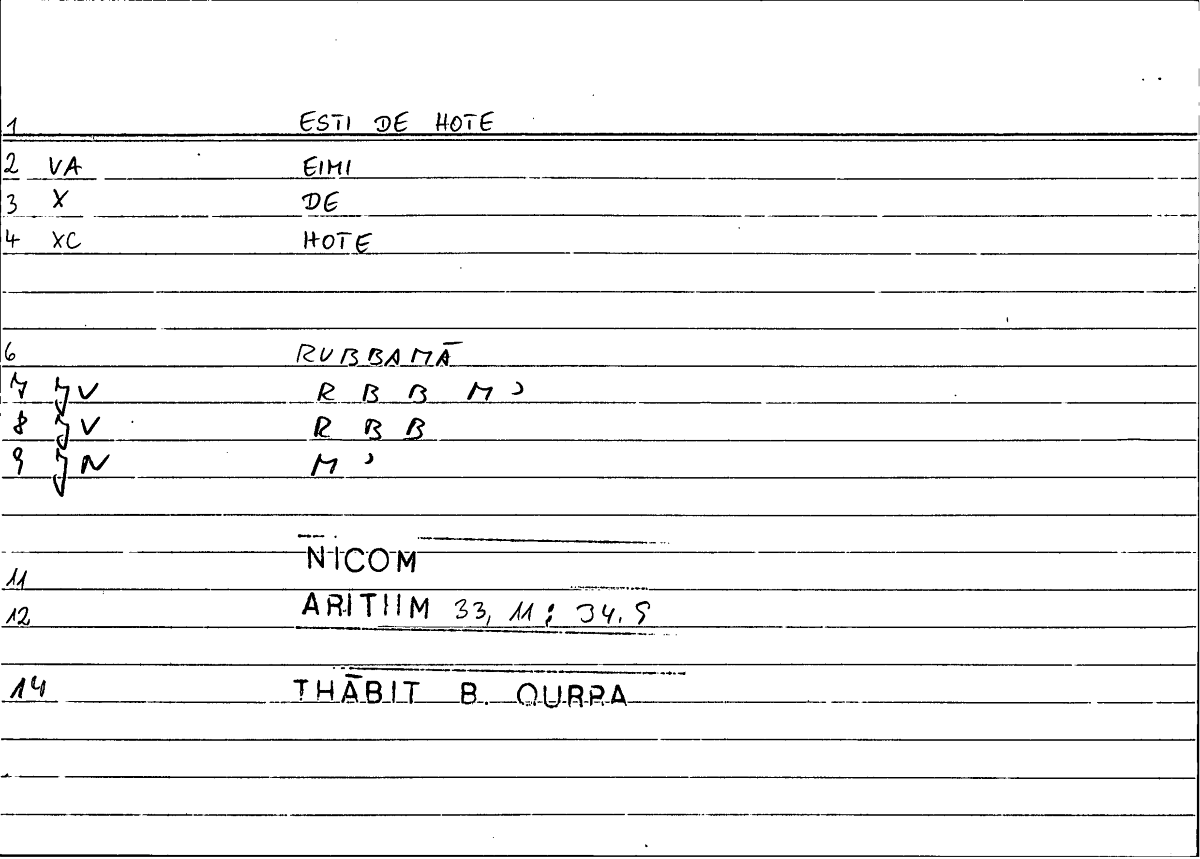 1 ESTI DE HOTE
2 VA EIMI
3 X DE
4 XC HOTE
6 RUBBAMĀ
7 JV R B B M ʾ
8 JV R B B
9 JN M ʾ
NICOM
11
12 ARITIIM 33, 11; 34, 9
14 THĀBIT B. QURRA